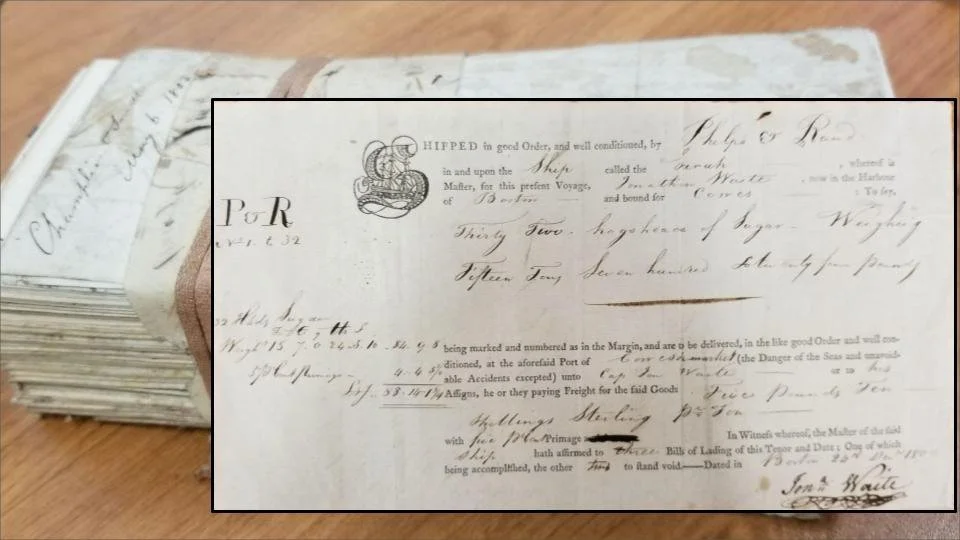 Champlin
May 6
SHIPPED in good Order, and well conditioned, by Phelps & Rand
in and upon the Ship called the Sarah whereof is
Master, for this present Voyage, Jonathan Waite now in the Harbour
of Boston and bound for Cowes To say,
P & R
No 1. t. 32
Thirty Two hogsheads of Sugar Weighing
Fifteen Tons Seven hundred & twenty four pounds
32 Hhds Sugar
Weigh 15 7. 0 24
being marked and numbered as in the Margin, and are to be delivered, in the like good Order and well con-
ditioned, at the aforesaid Port of Cowes & market (the Danger of the Seas and unavoid-
able Accidents excepted) unto Cap Jon Waite or to his
Assigns, he or they paying Freight for the said Goods Five Pounds Ten
Shillings Sterling Pr Ton
with five P Cent Primage In Witness whereof, the Master of the said
Ship hath affirmed to three Bills of Lading of this Tenor and Date; One of which
being accomplished, the other two to stand void.—Dated in Boston
Jonn Waite